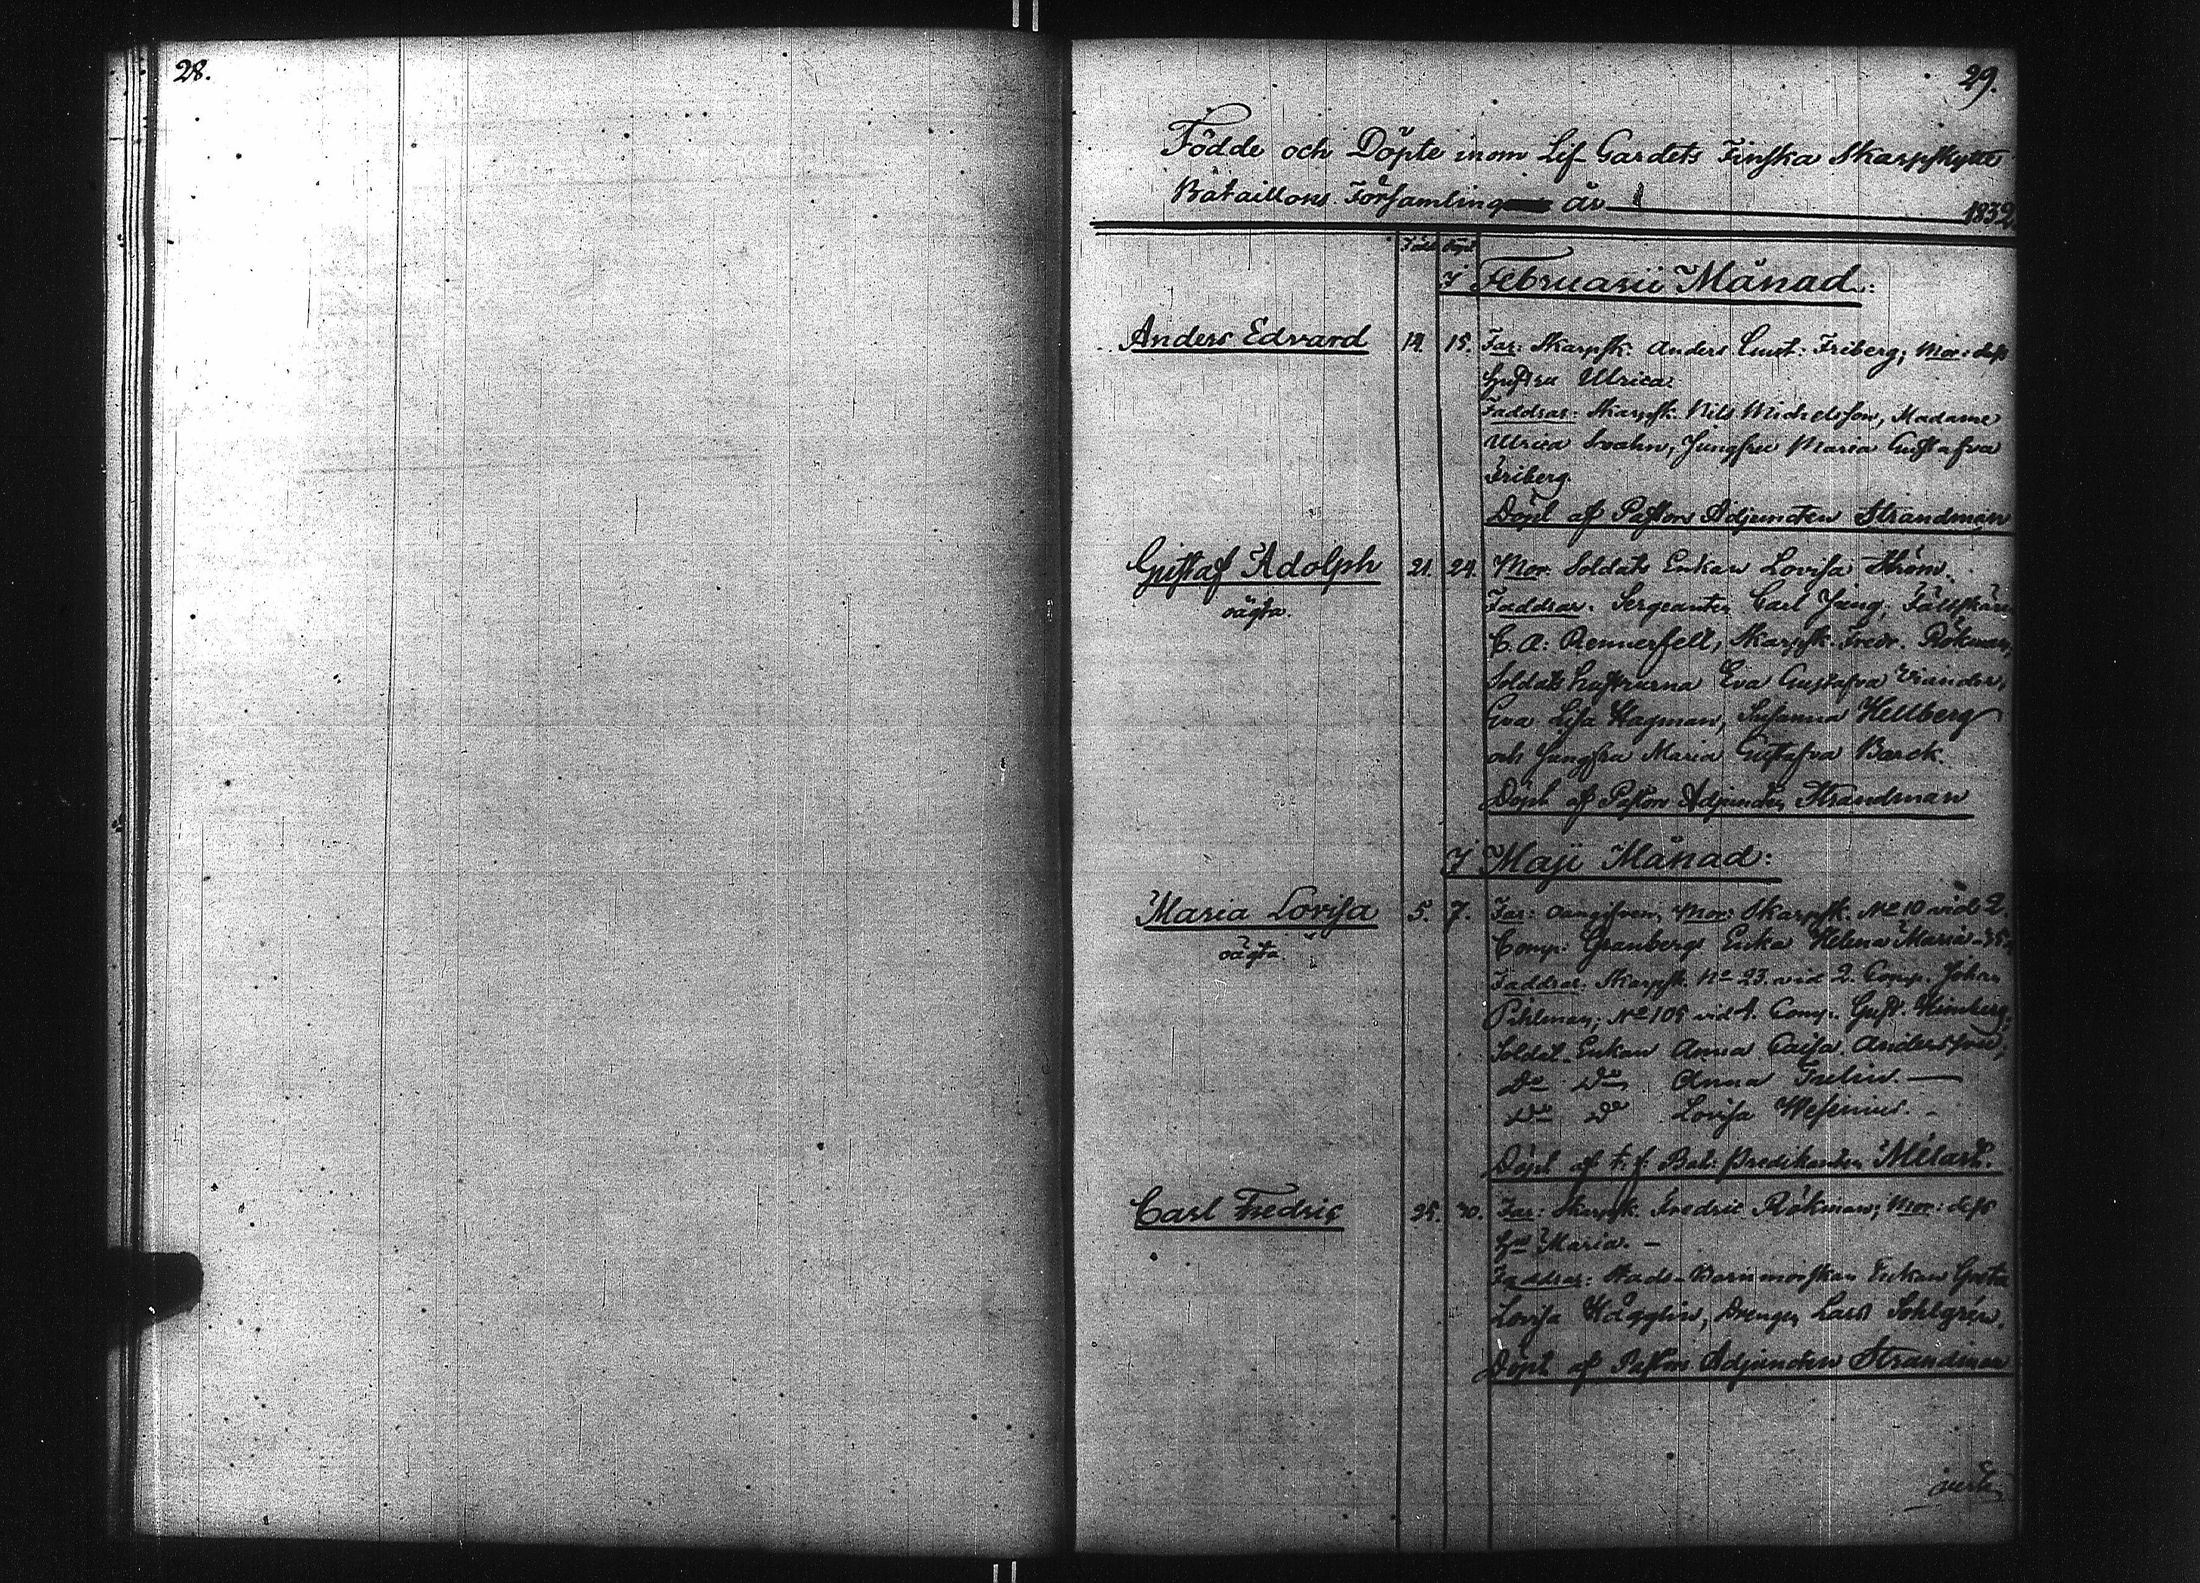 28.
29.
Födde och Döpte inom Lif Gardets Finska Skarpskytte
Bataillons Församling år 1832
Född Döpt
I Februarii Månad:
Anders Edvard 14. 15. Far: Skarpsk. Anders Gust: Friberg; Mor: dess
Hustru Ulrica:
Faddrar: Skarpsk. Nils Michelsson, Madame
Ulrica Svahn, Jungfru Maria Gustafva
Friberg.
Döpt af Pastors Adjuncten Strandman
Gustaf Adolph 21. 24. Mor. Soldats Enkan Lovisa Ström.
oägta. Faddrar. Sergeanten Carl Jung, Fältskären
C. A. Rennerfelt, Skarpsk. Fredr. Rökman,
Soldats hustrurna Eva Gustafva Viander,
Eva Lisa Hagman, Susanna Hellberg
och Jungfru Maria Gustafva Barck.
Döpt af Pastors Adjuncten Strandman
I Maji Månad:
Maria Lovisa 5. 7. Far: oangifven, Mor: Skarpsk. No 10 vid 2.
oägta. Comp: Granbergs Enka Helena Maria 35
Faddrar. Skarpsk. No 23. vid 2. Comp. Johan
Pihlman; No 105 vid 1. Comp. Gust.
Soldat-Enkan Anna Caisa Andersson,
Do Do Anna Trelin. —
Do Do Lovisa Wesenius. -
Döpt af t. f. Bat. Predikanten Melart.
Carl Fredric 25. 30. Far: Skarpsk. Fredric Rökman; Mor: dess
Hu Maria. —
Faddrar: Stads-Barnmorskan Enkan Greta
Lovisa Hägglin, Drengen Lars Sohlgrén.
Döpt af Pastors Adjuncten Strandman